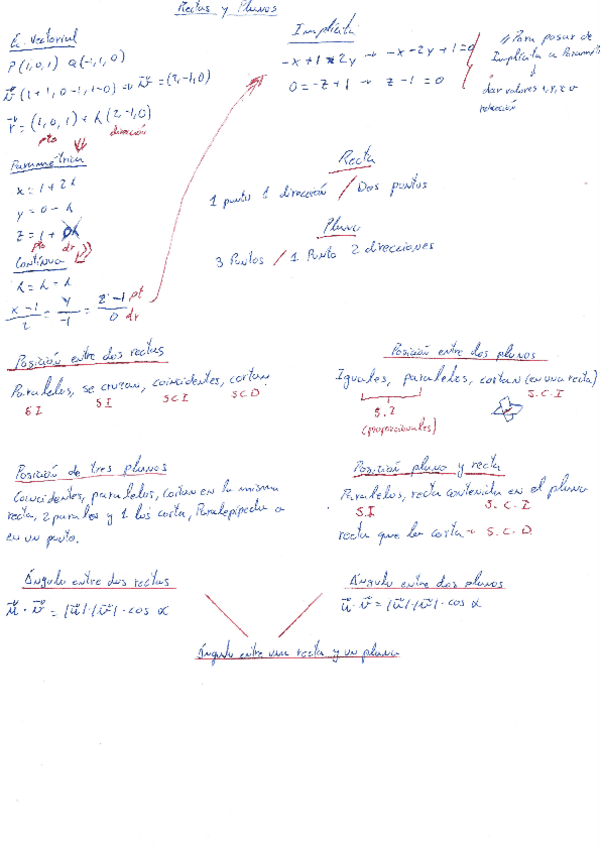 Rectas y Planos
Ec. Vectorial
P(1,0,1) Q(-1,1,0)
v⃗(1+1, 0-1, 1-0) → v⃗=(2,-1,0)
r⃗=(1,0,1)+λ(2,-1,0)
pto dirección
Paramétrica
x=1+2λ
y=0-λ
z=1+0λ
pto dr
Continua
λ=λ-λ
x-1/2 = y/-1 = z-1/0 pt
dr
Implícita
-x+1=2y → -x-2y+1=0
0=-z+1 → z-1=0
Para pasar de
Implícita a Paramét
↓
dar valores
relación
Recta
1 punto 1 dirección / Dos puntos
Plano
3 Puntos / 1 Punto 2 direcciones
Posición entre dos rectas
Paralelos, se cruzan, coincidentes, cortan
S.I S.I S.C.I S.C.D
Posición entre dos planos
Iguales, paralelos, cortan (en una recta)
S.I S.C.I
(proporcionales)
Posición de tres planos
Coincidentes, paralelos, cortan en la misma
recta, 2 paralelos y 1 los corta, Paralepípedo o
en un punto.
Posición plano y recta
Paralelos, recta contenida en el plano
S.I S.C.I
recta que lo corta → S.C.D.
Ángulo entre dos rectas
u⃗·v⃗=|u⃗|·|v⃗|·cos α
Ángulo entre dos planos
u⃗·v⃗=|u⃗|·|v⃗|·cos α
Ángulo entre una recta y un plano